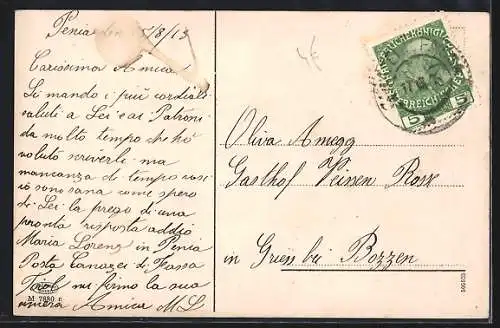 Penia den 15/8/13
Carissima Amica
Li mando i più cordiali
saluti a Lei e ai Patroni
da molto tempo che hò
voluto scriverli ma
mancanza di tempo così
iò sono sana come spero
di Lei la prego di una
pronta risposta addiò
Maria Lorenz in Penia
Posta Canazei di Fassa
Tirol mi firmo la sua
Amica M L
M 7880
4€
5 5
Oliva Amegg
Gasthof Weisen Rosse
in Gries bei Bozzen